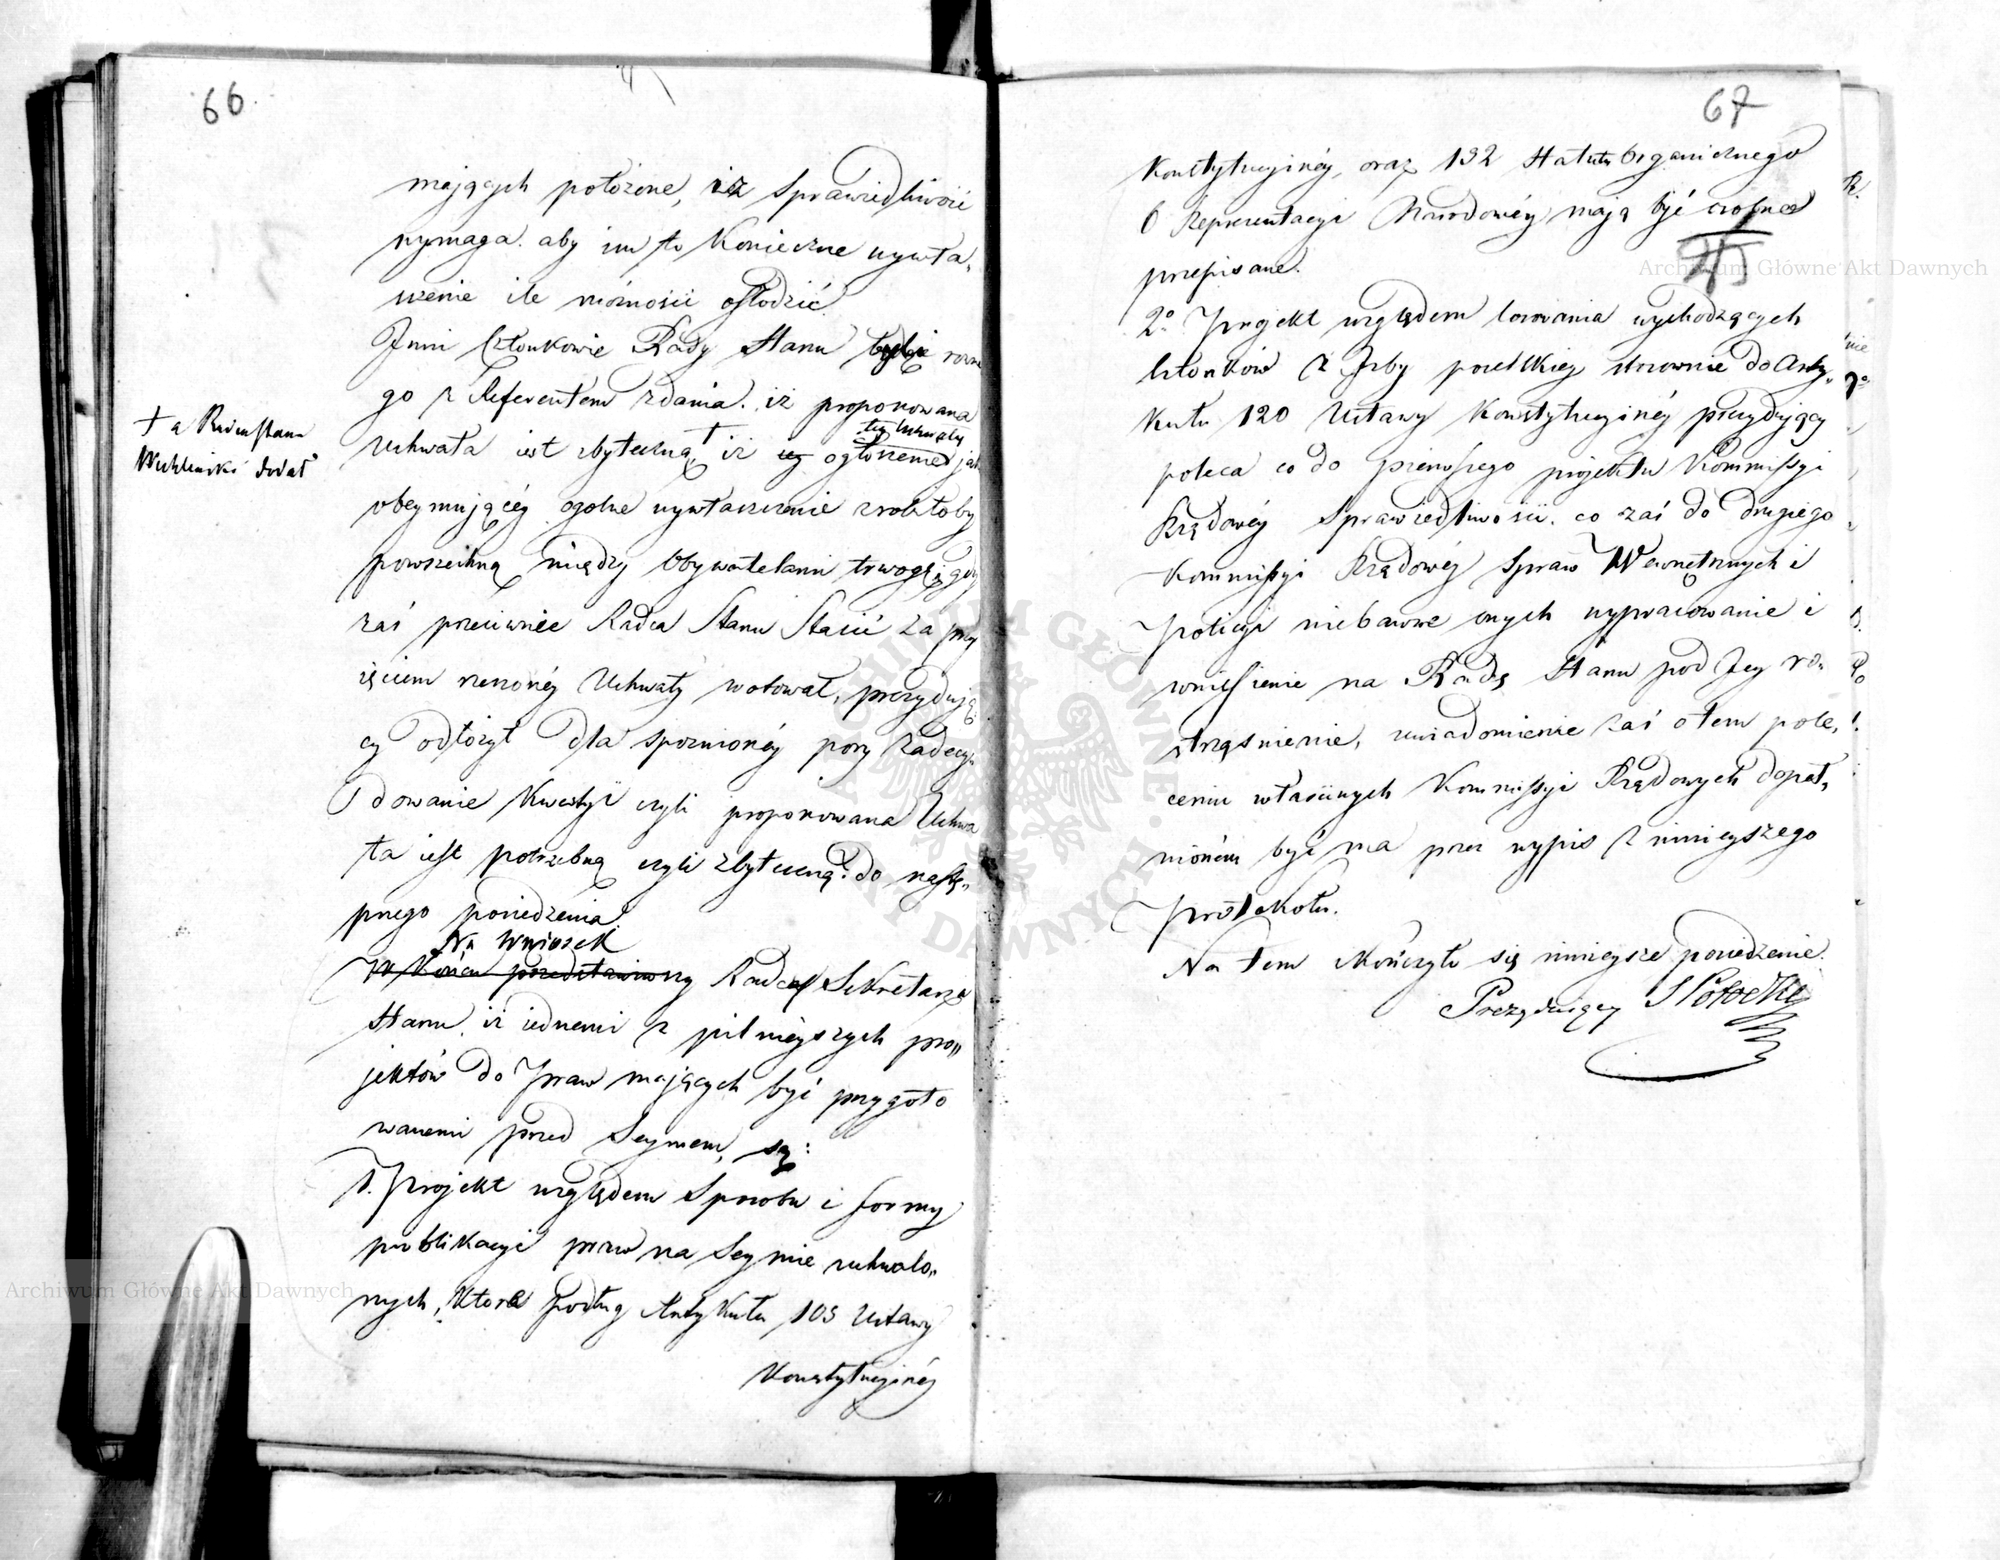 66.
mających położone, iż sprawiedliwość
wymaga. aby im to konieczne wywła„
szczenie ile możności osłodzić.
Inni Członkowie Rady Stanu będąc rowne
go z Referentem zdania. iż proponowana
Uchwała iest zbyteczną † iż iey ogłoszenie jak
tey Uchwały
† a Radca Stanu
Wichliński dodał
obeymuiącéy ogolne wywłaszczenie zrobiłoby
powszechną między Obywatelami trwogę; gdy
zaś przeciwnie Radca Stanu Stasic za przy
ięciem rzeczonéy Uchwały wotował, prezyduią
cy odłożył dla spoznionéy pory zadecy„
dowanie kwestyi czyli proponowana Uchwa
ła iest potrzebną czyli zbyteczną? do nastę„
pnego posiedzenia.
Na Wniosek
W końcu przedstawiony Radcy Sekretarza
Stanu, iż iednemi z pilnieyszych pro„
jektów do Praw mających być przygoto
wanemi przed Seymem, są:
1. Projekt względem sposobu i formy
publikacyi praw na Seymie uchwalo„
nych, które podług Artykułu 105 Ustawy
Konstytucyinéy
67
Konstytucyinéy, oraz 132 Statutu Organicznego
O Reprezentacyi Narodowéy mają być osobno
przepisane.
2o Projekt względem losowania wychodzących
Członków z Izby poselskiey stosownie do Arty„
kułu 120 Ustawy Konstytucyinéy prezydujący
poleca co do pierwszego projektu Kommissyi
Rządowéy Sprawiedliwości. co zaś do drugiego
Kommissyi Rządowéy Spraw Wewnętrznych i
Policyi niebawne onych wypracowanie i
wniesienie na Radę Stanu pod Jey roz
trząśnienie, uwiadomienie zaś o tem pole„
ceniu właściwych Kommissyi Rządowych dopeł„
nioném być ma przez wypis z ninieyszego
Protokołu.
Na tem skończyło się ninieysze posiedzenie.
Prezyduiący S Potocki
Archiwum Główne Akt Dawnych
Archiwum Główne Akt Dawnych
ARCHIWUM GŁÓWNE AKT DAWNYCH